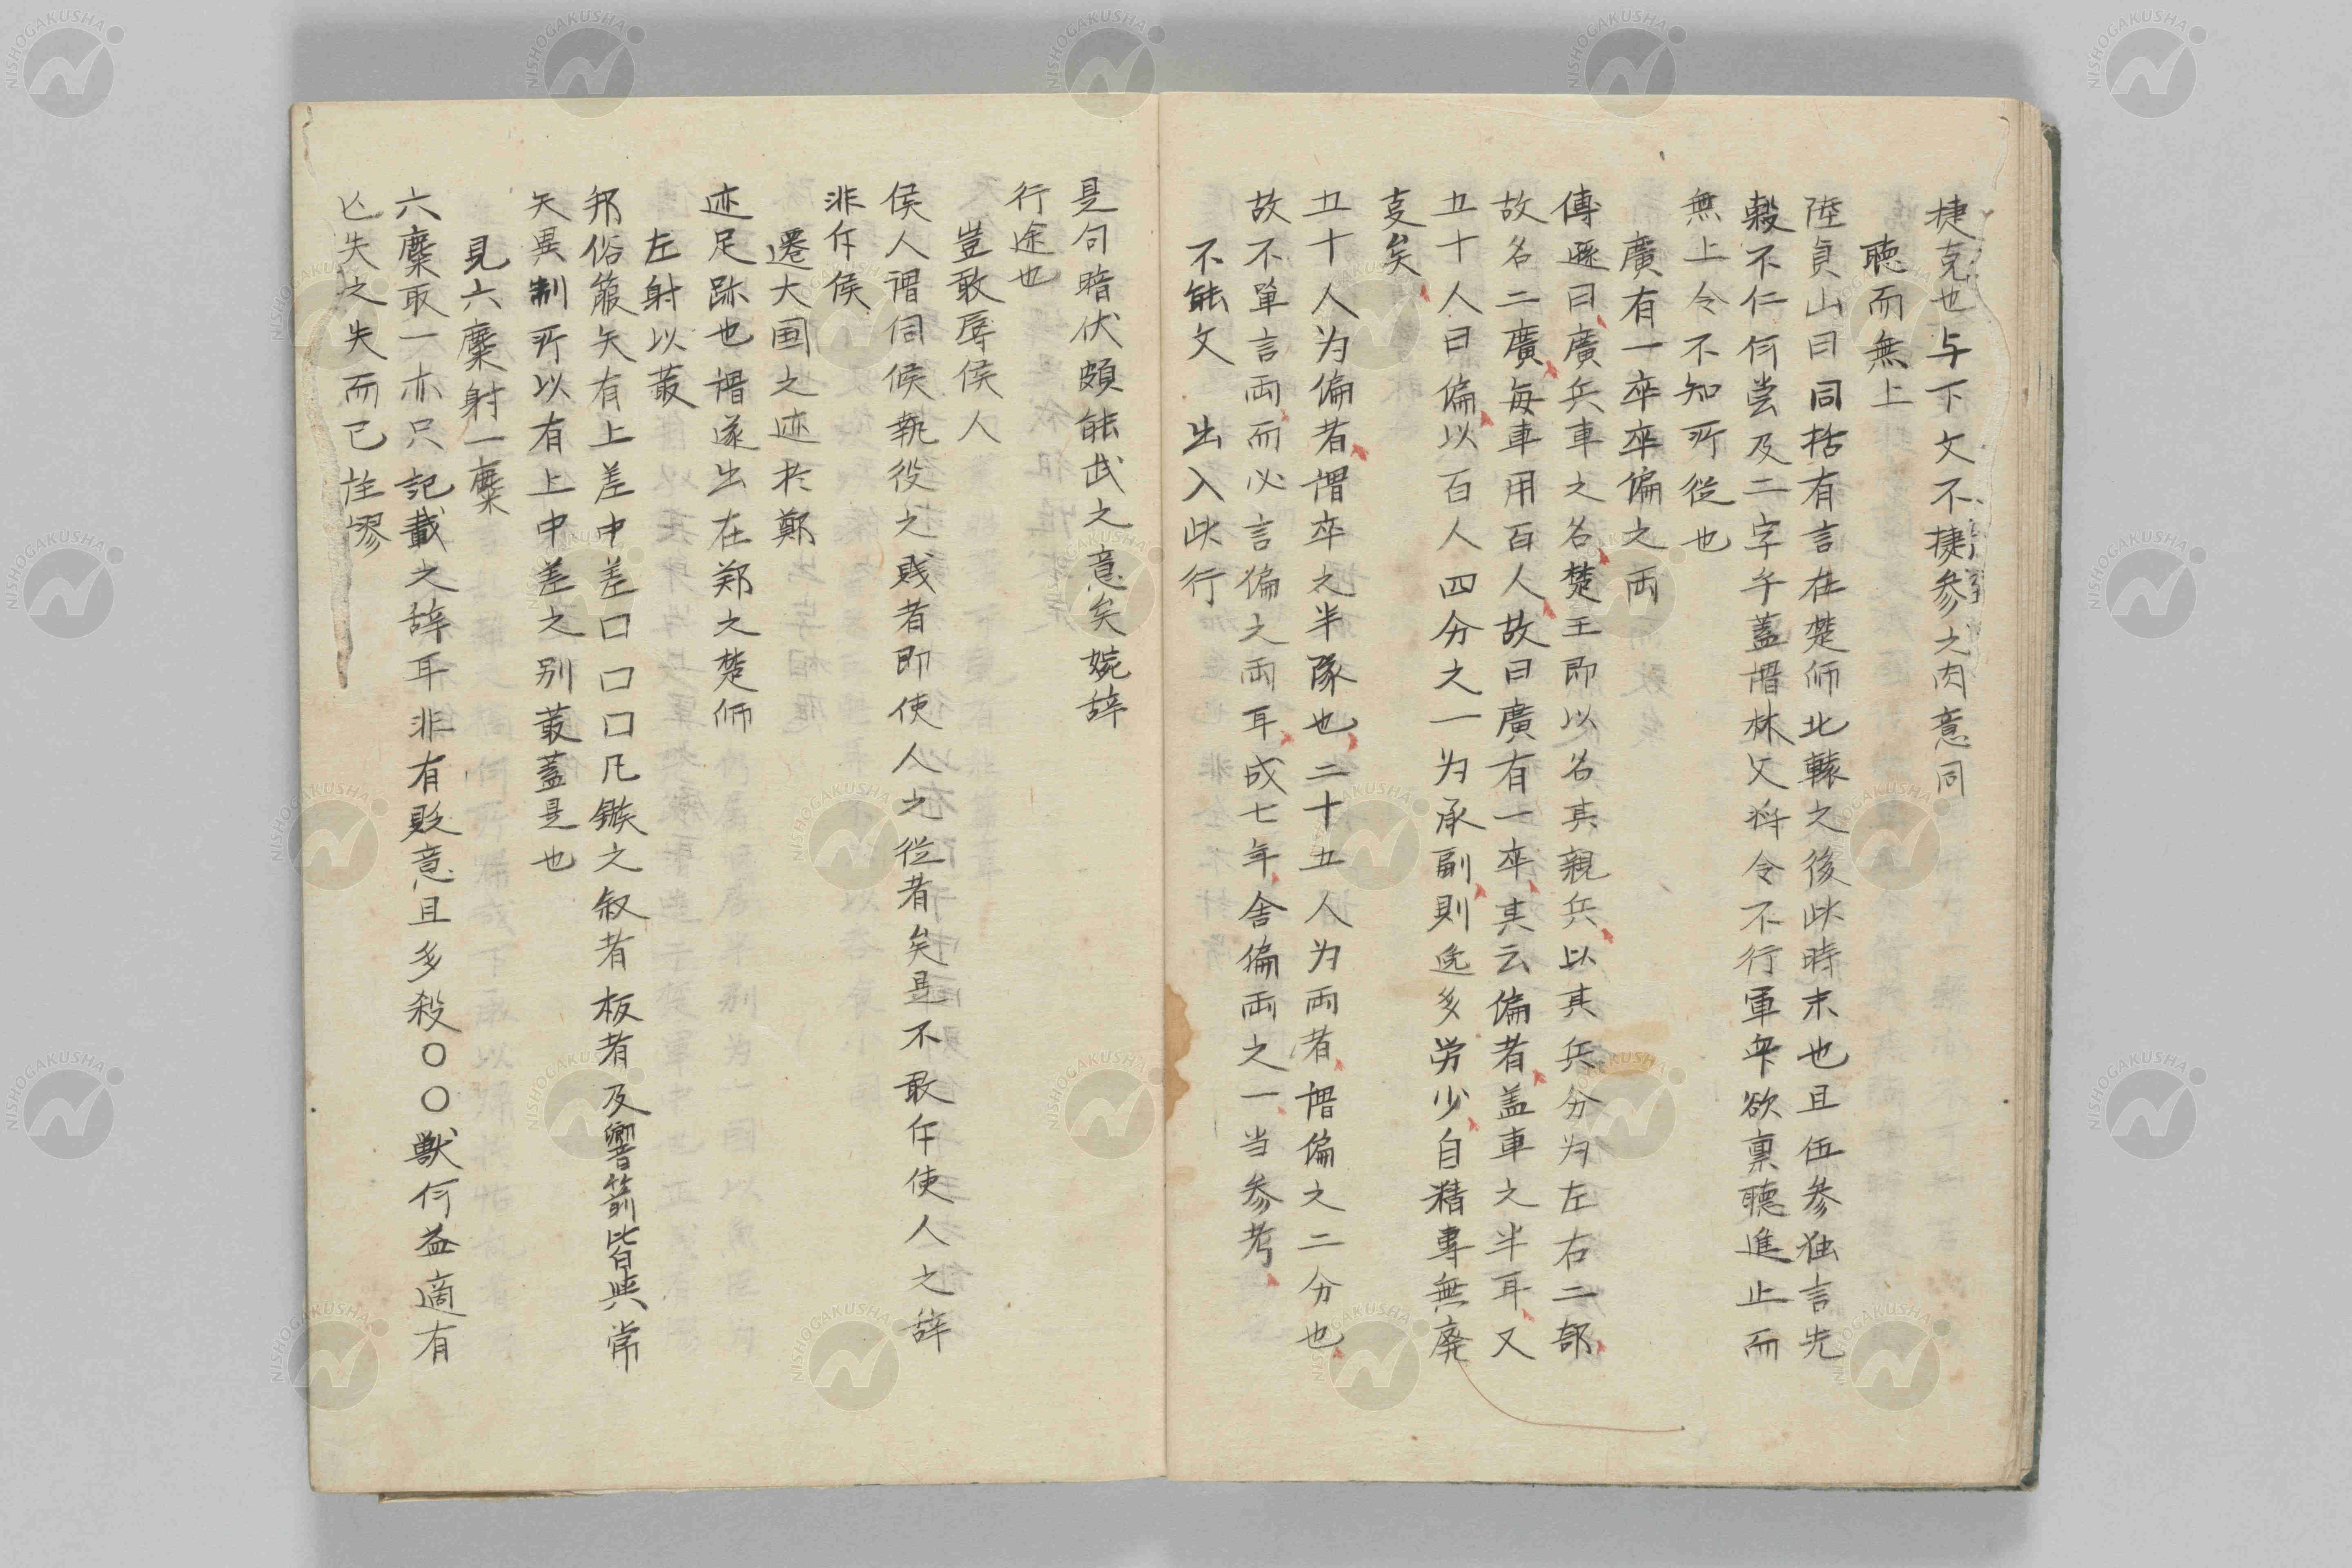 捷克也与下文不捷參之肉意同
聴而無上
陸貞山曰同括有言在楚師北轅之後此時未也且伍參独言先
縠不仁何嘗及二字乎蓋謂林父将令不行軍卒欲稟聴進止而
無上令不知所従也
廣有一卒卒偏之両
傅遜曰廣兵車之名楚王即以名其親兵以其兵分为左右二部
故名二廣毎車用百人故曰廣有一卒其云偏者盖車之半耳又
五十人曰偏以百人四分之一为承副則逸多労少自精専無廃
叓矣
五十人为偏者謂卒之半隊也二十五人为両者謂偏之二分也
故不単言両而必言偏之両耳成七年舎偏両之一当参考
不能文 出入此行
是句暗伏頗能武之意矣婉辞
行途也
豈敢辱侯人
侯人謂伺候執役之賎者即使人之従者矣是不敢斥使人之辞
非斥侯
遷大国之迹於鄭
迹足跡也謂遂出在郑之楚師
左射以菆
邦俗箙矢有上差中差口口口凡鏃之叙者板者及響箭皆與常
矢異制所以有上中差之別菆蓋是也
見六麋射一麋
六麋取一亦只記載之辞耳非有貶意且多殺〇〇獣何益適有
亾矢之失而已註謬
NISHOGAKUSHA